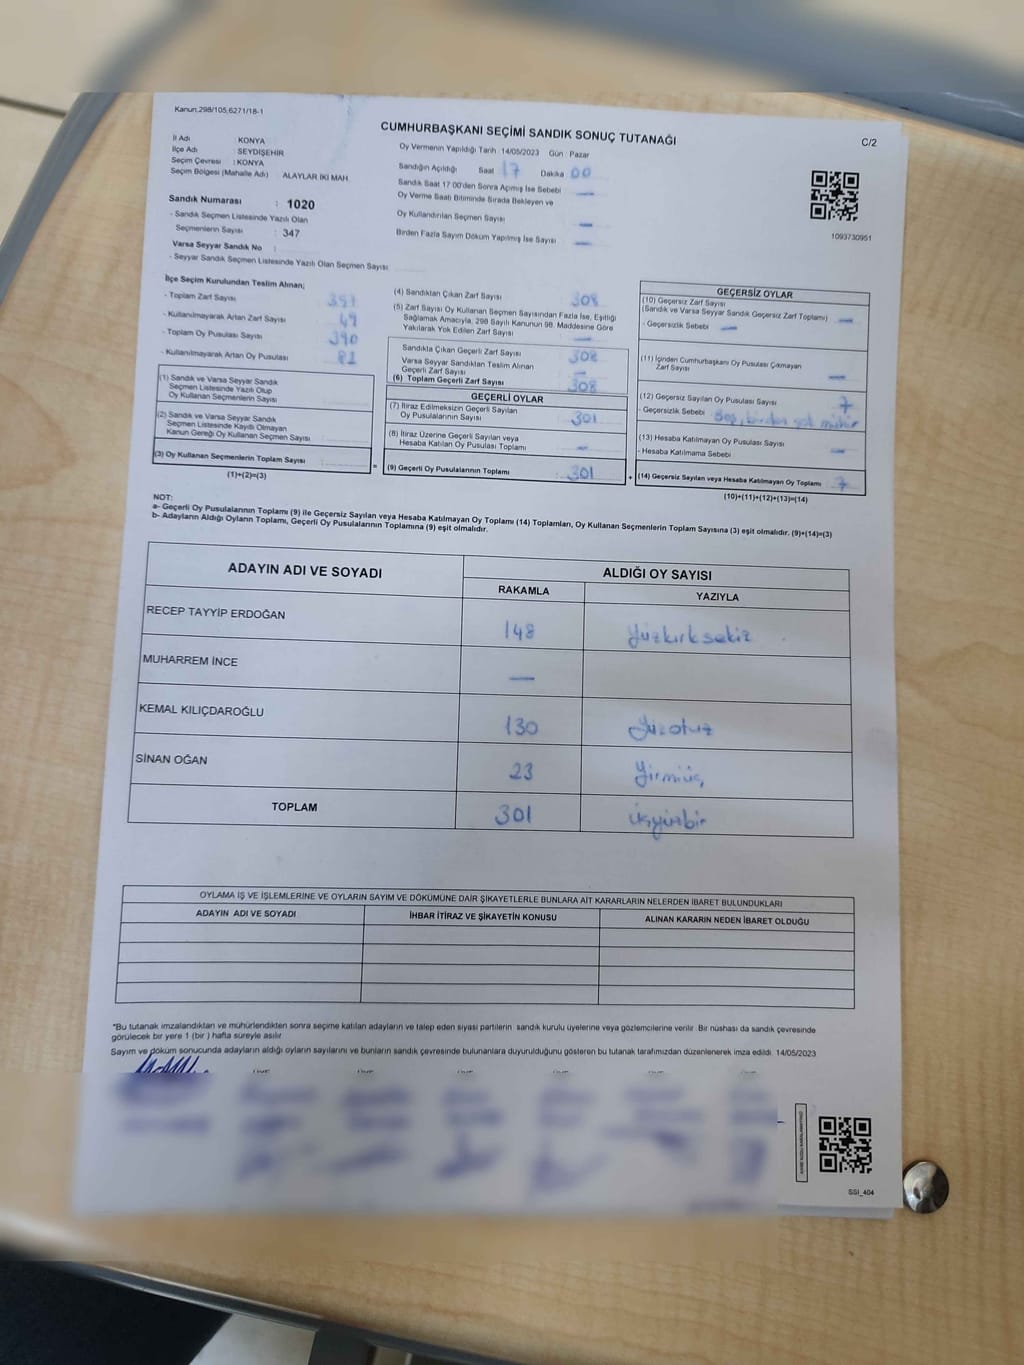 Kanun:298/105,6271/18-1
CUMHURBAŞKANI SEÇİMİ SANDIK SONUÇ TUTANAĞI
C/2
İl Adı : KONYA
İlçe Adı : SEYDİŞEHİR
Seçim Çevresi : KONYA
Seçim Bölgesi (Mahalle Adı) : ALAYLAR İKİ MAH.
Sandık Numarası : 1020
- Sandık Seçmen Listesinde Yazılı Olan
Seçmenlerin Sayısı : 347
Varsa Seyyar Sandık No :
- Seyyar Sandık Seçmen Listesinde Yazılı Olan Seçmen Sayısı
Oy Vermenin Yapıldığı Tarih : 14/05/2023 Gün : Pazar
Sandığın Açıldığı Saat 17 Dakika 00
Sandık Saat 17 00'den Sonra Açılmış İse Sebebi —
Oy Verme Saati Bitiminde Sırada Bekleyen ve
Oy Kullandırılan Seçmen Sayısı —
Birden Fazla Sayım Döküm Yapılmış İse Sayısı —
1093730951
İlçe Seçim Kurulundan Teslim Alınan;
- Toplam Zarf Sayısı
- Kullanılmayarak Artan Zarf Sayısı : 49
- Toplam Oy Pusulası Sayısı : 390
- Kullanılmayarak Artan Oy Pusulası : 82
(1) Sandık ve Varsa Seyyar Sandık
Seçmen Listesinde Yazılı Olup
Oy Kullanan Seçmenlerin Sayısı
(2) Sandık ve Varsa Seyyar Sandık
Seçmen Listesinde Kayıtlı Olmayan
Kanun Gereği Oy Kullanan Seçmen Sayısı
(3) Oy Kullanan Seçmenlerin Toplam Sayısı
(1)+(2)=(3)
(4) Sandıktan Çıkan Zarf Sayısı : 308
(5) Zarf Sayısı Oy Kullanan Seçmen Sayısından Fazla İse, Eşitliği
Sağlamak Amacıyla, 298 Sayılı Kanunun 98. Maddesine Göre
Yakılarak Yok Edilen Zarf Sayısı —
Sandıkta Çıkan Geçerli Zarf Sayısı : 308
Varsa Seyyar Sandıktan Teslim Alınan
Geçerli Zarf Sayısı —
(6) Toplam Geçerli Zarf Sayısı : 308
GEÇERLİ OYLAR
(7) İtiraz Edilmeksizin Geçerli Sayılan
Oy Pusulalarının Sayısı : 301
(8) İtiraz Üzerine Geçerli Sayılan veya
Hesaba Katılan Oy Pusulası Toplamı : —
= (9) Geçerli Oy Pusulalarının Toplamı : 301
GEÇERSİZ OYLAR
(10) Geçersiz Zarf Sayısı
(Sandık ve Varsa Seyyar Sandık Geçersiz Zarf Toplamı) —
- Geçersizlik Sebebi : —
(11) İçinden Cumhurbaşkanı Oy Pusulası Çıkmayan
Zarf Sayısı —
(12) Geçersiz Sayılan Oy Pusulası Sayısı : 7
- Geçersizlik Sebebi : Boş, birden çok mühür
(13) Hesaba Katılmayan Oy Pusulası Sayısı
- Hesaba Katılmama Sebebi —
+ (14) Geçersiz Sayılan veya Hesaba Katılmayan Oy Toplamı : 7
(10)+(11)+(12)+(13)=(14)
NOT:
a- Geçerli Oy Pusulalarının Toplamı (9) ile Geçersiz Sayılan veya Hesaba Katılmayan Oy Toplamı (14) Toplamları, Oy Kullanan Seçmenlerin Toplam Sayısına (3) eşit olmalıdır. (9)+(14)=(3)
b- Adayların Aldığı Oyların Toplamı, Geçerli Oy Pusulalarının Toplamına (9) eşit olmalıdır.
ADAYIN ADI VE SOYADI ALDIĞI OY SAYISI
RAKAMLA YAZIYLA
RECEP TAYYİP ERDOĞAN 148 Yüzkırksekiz
MUHARREM İNCE —
KEMAL KILIÇDAROĞLU 130 Yüzotuz
SİNAN OĞAN 23 Yirmiüç
TOPLAM 301 üçyüzbir
OYLAMA İŞ VE İŞLEMLERİNE VE OYLARIN SAYIM VE DÖKÜMÜNE DAİR ŞİKAYETLERLE BUNLARA AİT KARARLARIN NELERDEN İBARET BULUNDUKLARI
ADAYIN ADI VE SOYADI İHBAR İTİRAZ VE ŞİKAYETİN KONUSU ALINAN KARARIN NEDEN İBARET OLDUĞU
*Bu tutanak imzalandıktan ve mühürlendikten sonra seçime katılan adayların ve talep eden siyasi partilerin sandık kurulu üyelerine veya gözlemcilerine verilir. Bir nüshası da sandık çevresinde
görülecek bir yere 1 (bir ) hafta süreyle asılır.
Sayım ve döküm sonucunda adayların aldığı oyların sayılarını ve bunların sandık çevresinde bulunanlara duyurulduğunu gösteren bu tutanak tarafımızdan düzenlenerek imza edildi. 14/05/2023
SSİ_404